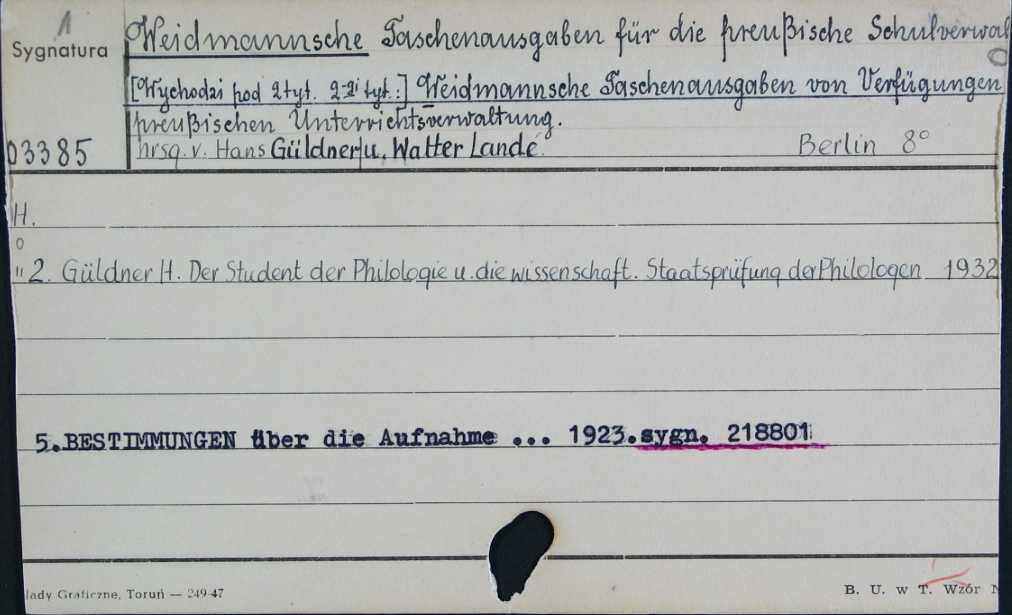 1
Sygnatura
Weidmannsche Taschenausgaben für die preußische Schulverwal
[Wychodzi pod 2 tyt. 2-gi tyt.:] Weidmannsche Taschenausgaben von Verfügungen
preußischen Unterrichtsverwaltung.
03385 hrsg. v. Hans Güldner u. Walter Landé. Berlin 8°
H.
o
" 2. Güldner H. Der Student der Philologie u. die wissenschaft. Staatsprüfung der Philologen 1932
5. BESTIMMUNGEN über die Aufnahme ... 1923. sygn. 218801
łady Graficzne, Toruń — 249-47
B. U. w T. Wzór N